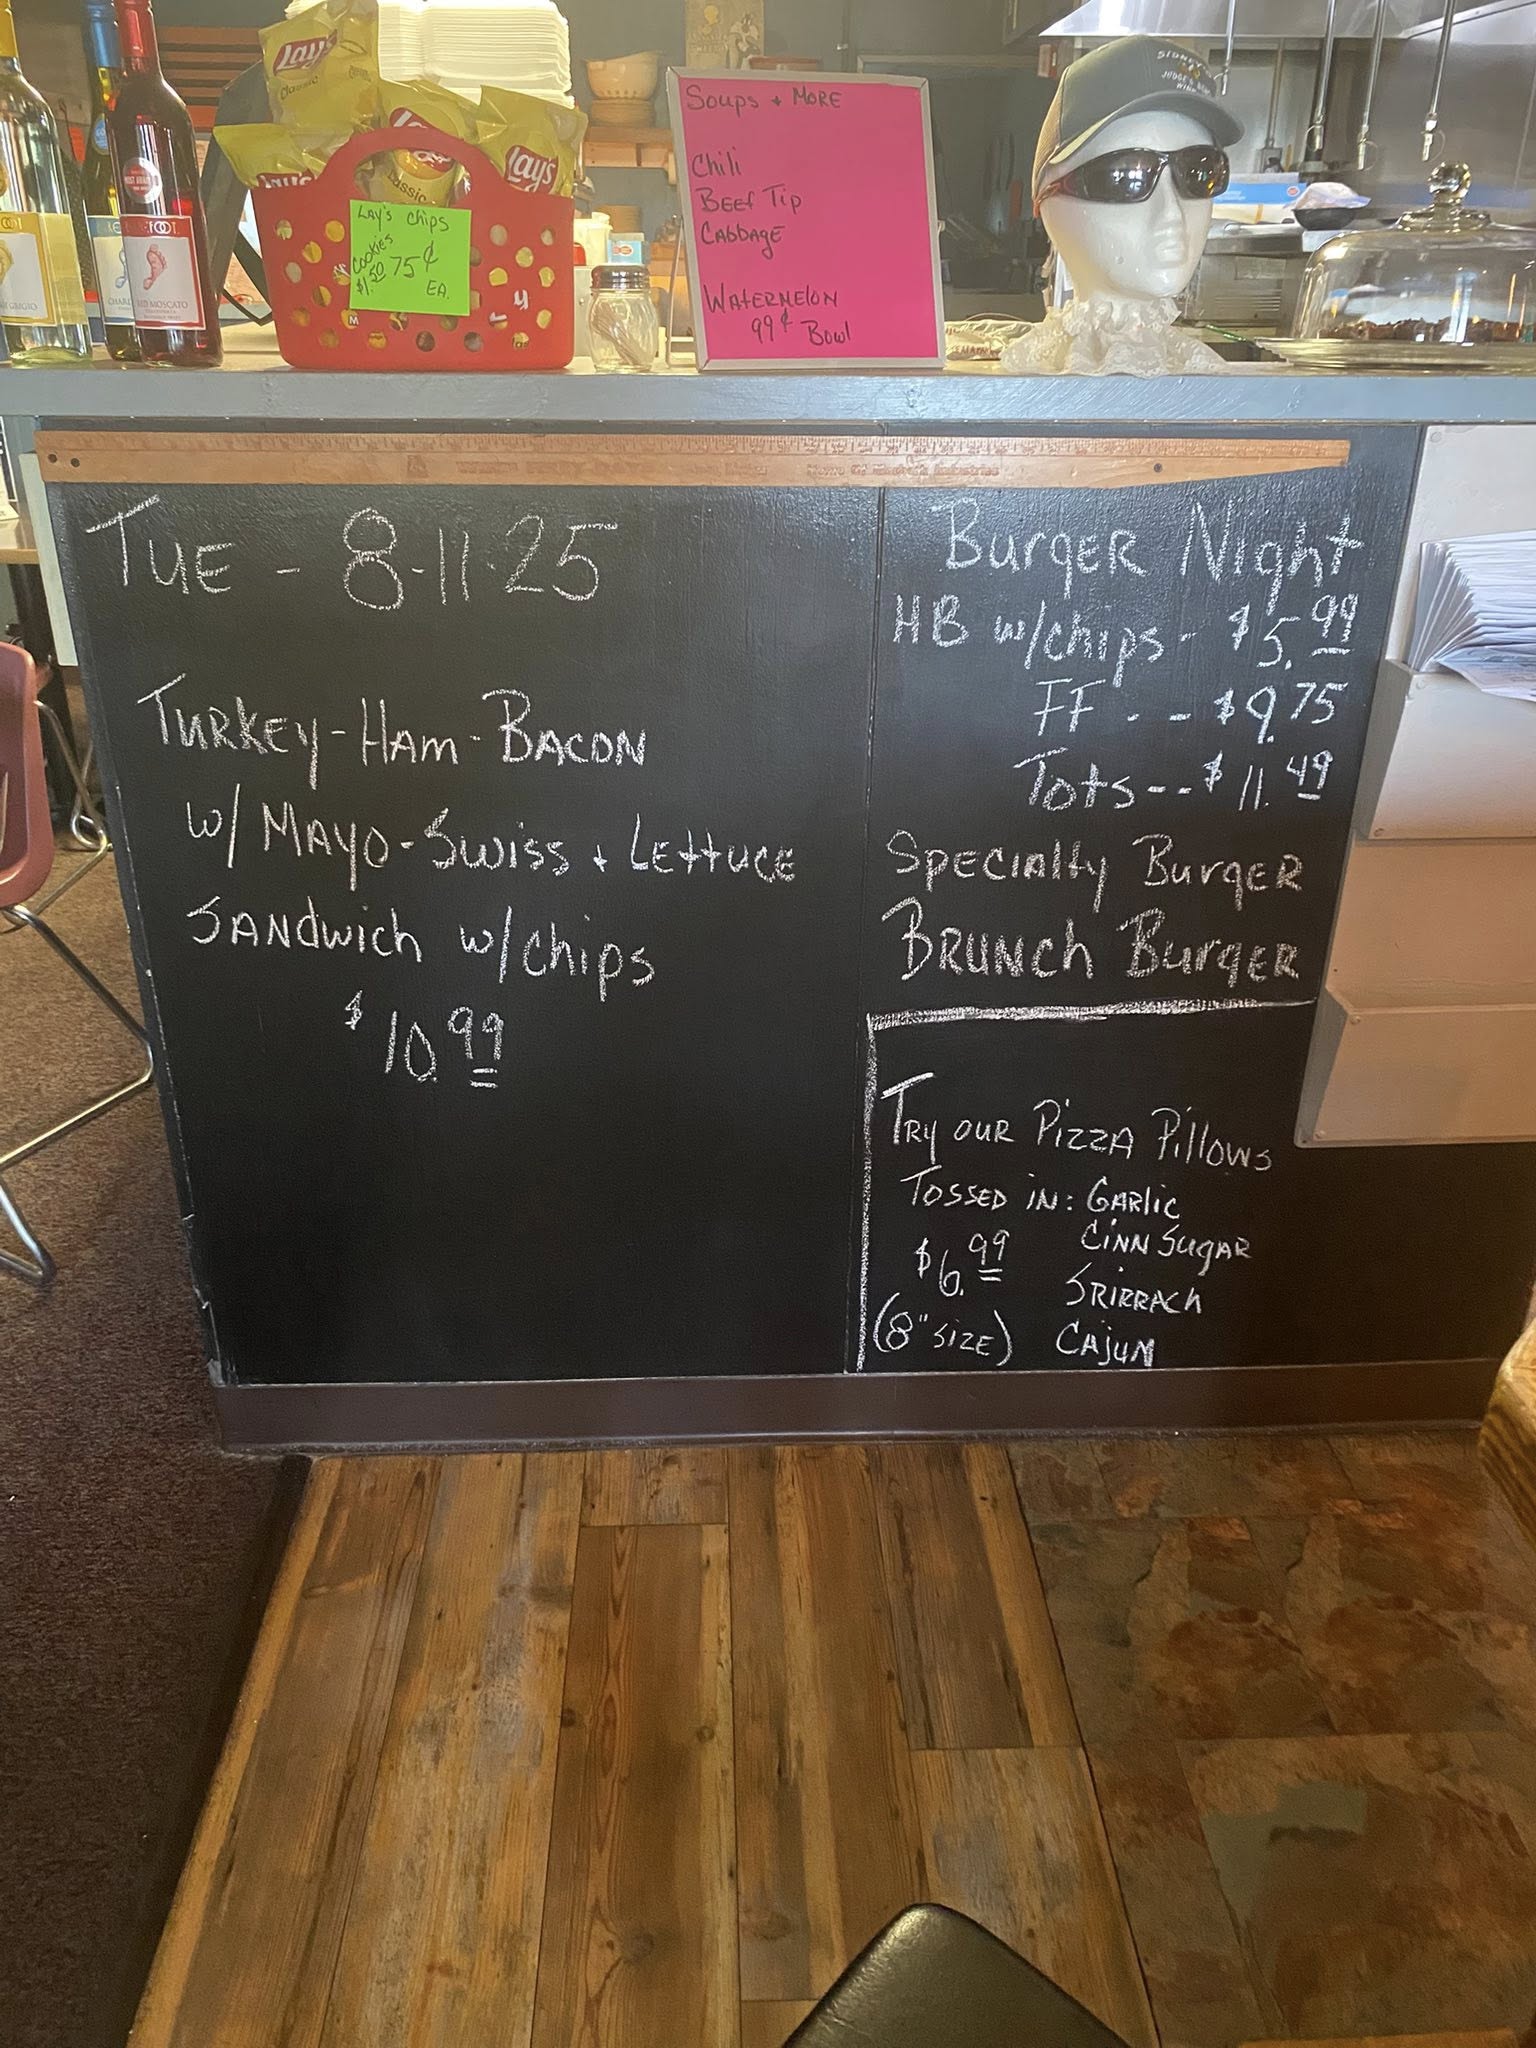 Lay's
Classic
Lay's
Classic
Lay's
Lay's chips
Cookies
$1.50
75¢
EA.
Soups + More
Chili
Beef Tip
Cabbage
Watermelon
99¢ Bowl
SIDNEY
JUDGE'S
WINN
FOOT
RED MOSCATO
CHARD
GRIGIO
Tue - 8-11-25
Turkey-Ham-Bacon
w/ Mayo-Swiss + Lettuce
Sandwich w/chips
$10.99
Burger Night
HB w/chips - $5.99
FF - - $9.75
Tots - - $11.49
Specialty Burger
Brunch Burger
Try our Pizza Pillows
Tossed in: Garlic
Cinn Sugar
$6.99
Srirrach
(8" size)
Cajun